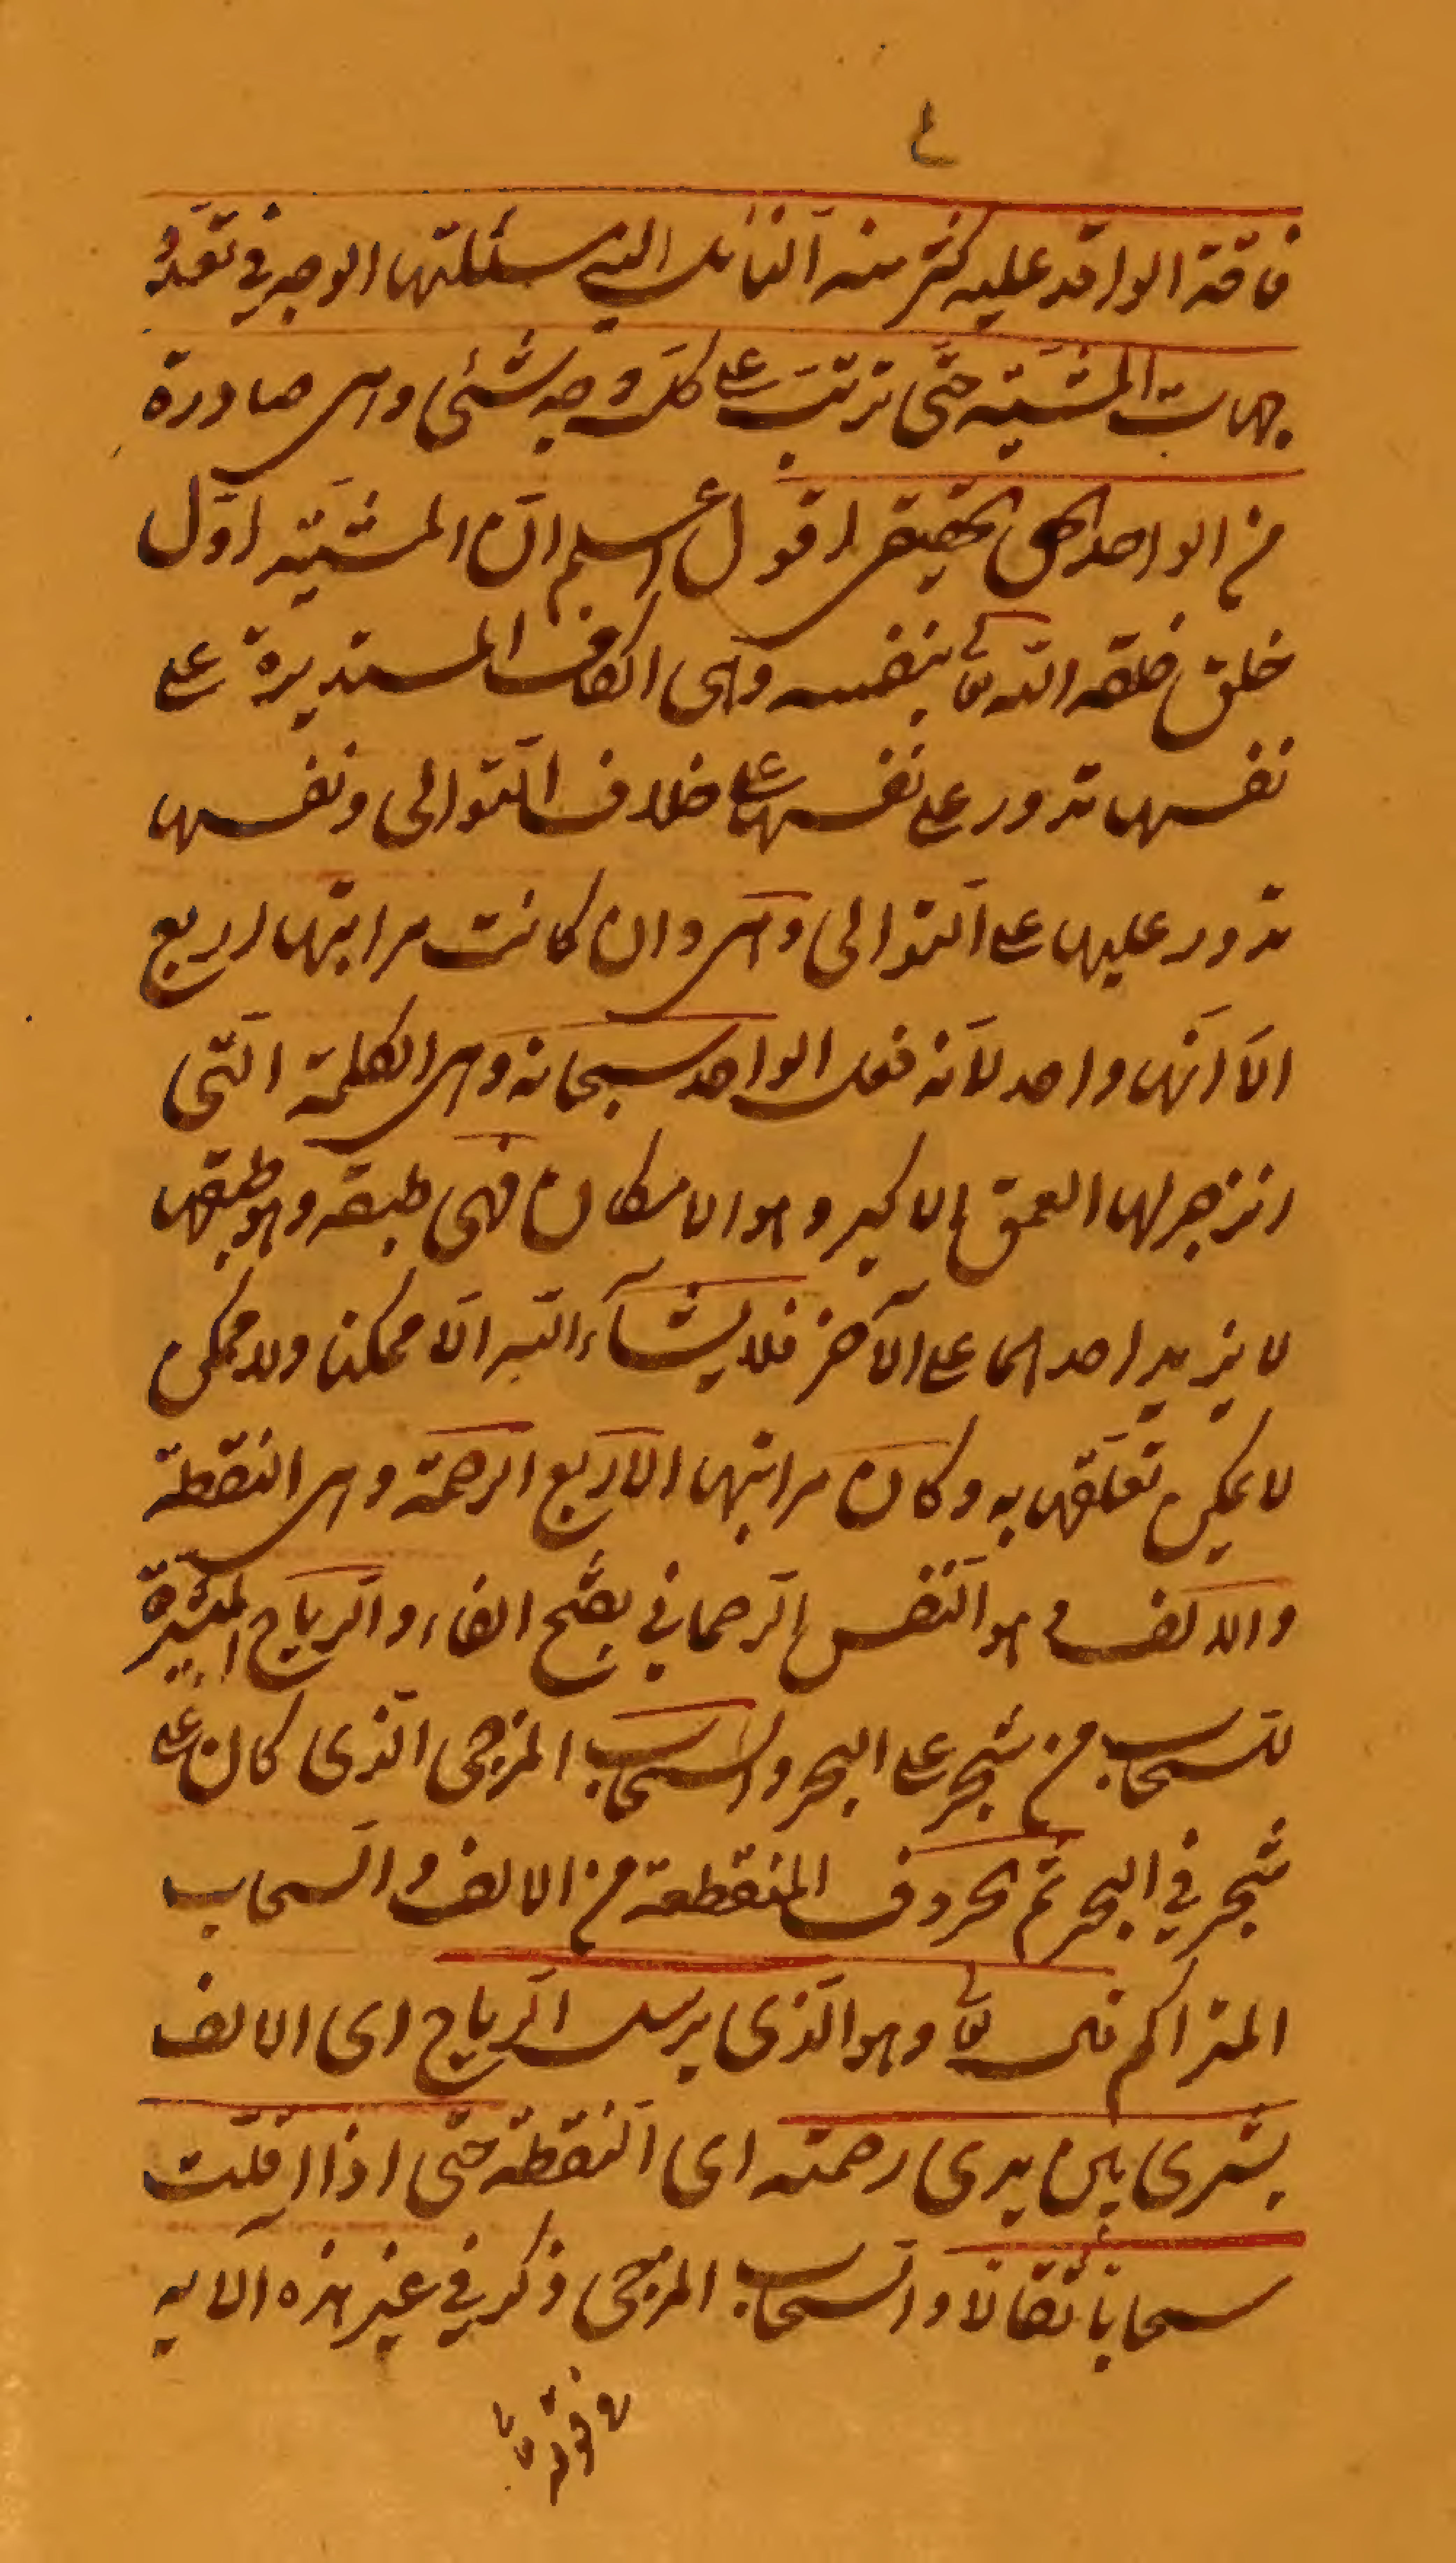 ٤
فاقة الوافد عليه كثر منه النائل الى مسئلتها الوجه في تعدد
جهات المشيّة حتّى ترتّب على كلّ وجه شئي وهى صادرة
من الواحد الحق الحقيقى اقول اعلم انّ المشيّة اوّل
خلق خلقه اللّه تع بنفسه وهى الكاف المستديرة على
نفسها تدور على نفسها على خلاف التّوالى ونفسها
تدور عليها على التّوالى وهى وان كانت مراتبها اربع
الّا انّها واحد لانّه فعل الواحد سبحانه وهى الكلمة الّتى
انزجر لها العمق الاكبر وهو الامكان فهى طبقه وهو طبقها
لا يزيد احدهما على الآخر فلا يشآء اللّه الّا ممكنا ولا ممكن
لا يمكن تعلّقها به وكان مراتبها الاربع الرحمة وهى النقطة
والالف وهو النّفس الرّحمانى بفتح الفاء والرياح المثيرة
للسّحاب من شجر على البحر والسّحاب المزجى الّذى كان على
شجر في البحر ثم الحروف المنقطعة من الالف والسّحاب
المتراكم قال تع وهو الّذى يرسل الرّياح اى الالف
بشرى بين يدى رحمته اى النّقطة حتّى اذا اقلّت
سحابا ثقالا والسّحاب المزجى ذكر في غير هذه الايه